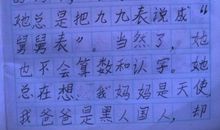 她总是把九九表说成“
舅舅表”。当然了，她
也不会算数和认字。她
总在想：我妈妈是天使
我爸爸是黑人国人，却